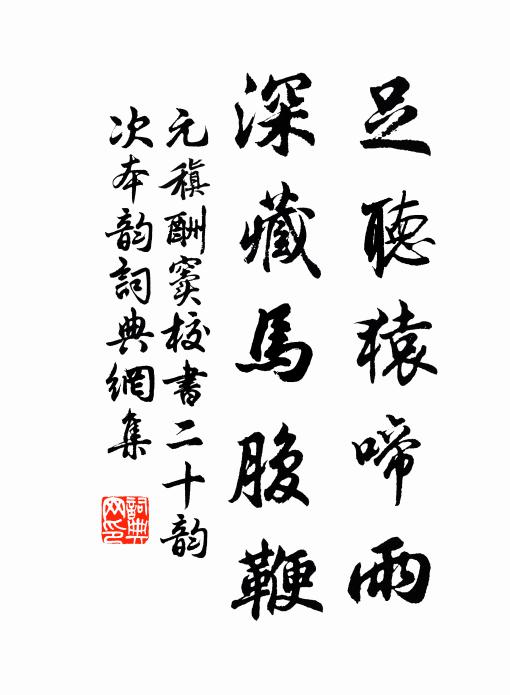 足聽猿啼雨
深藏馬腹鞭
元稹酬竇校書二十韵
次本韵詞典網集
詞典網印